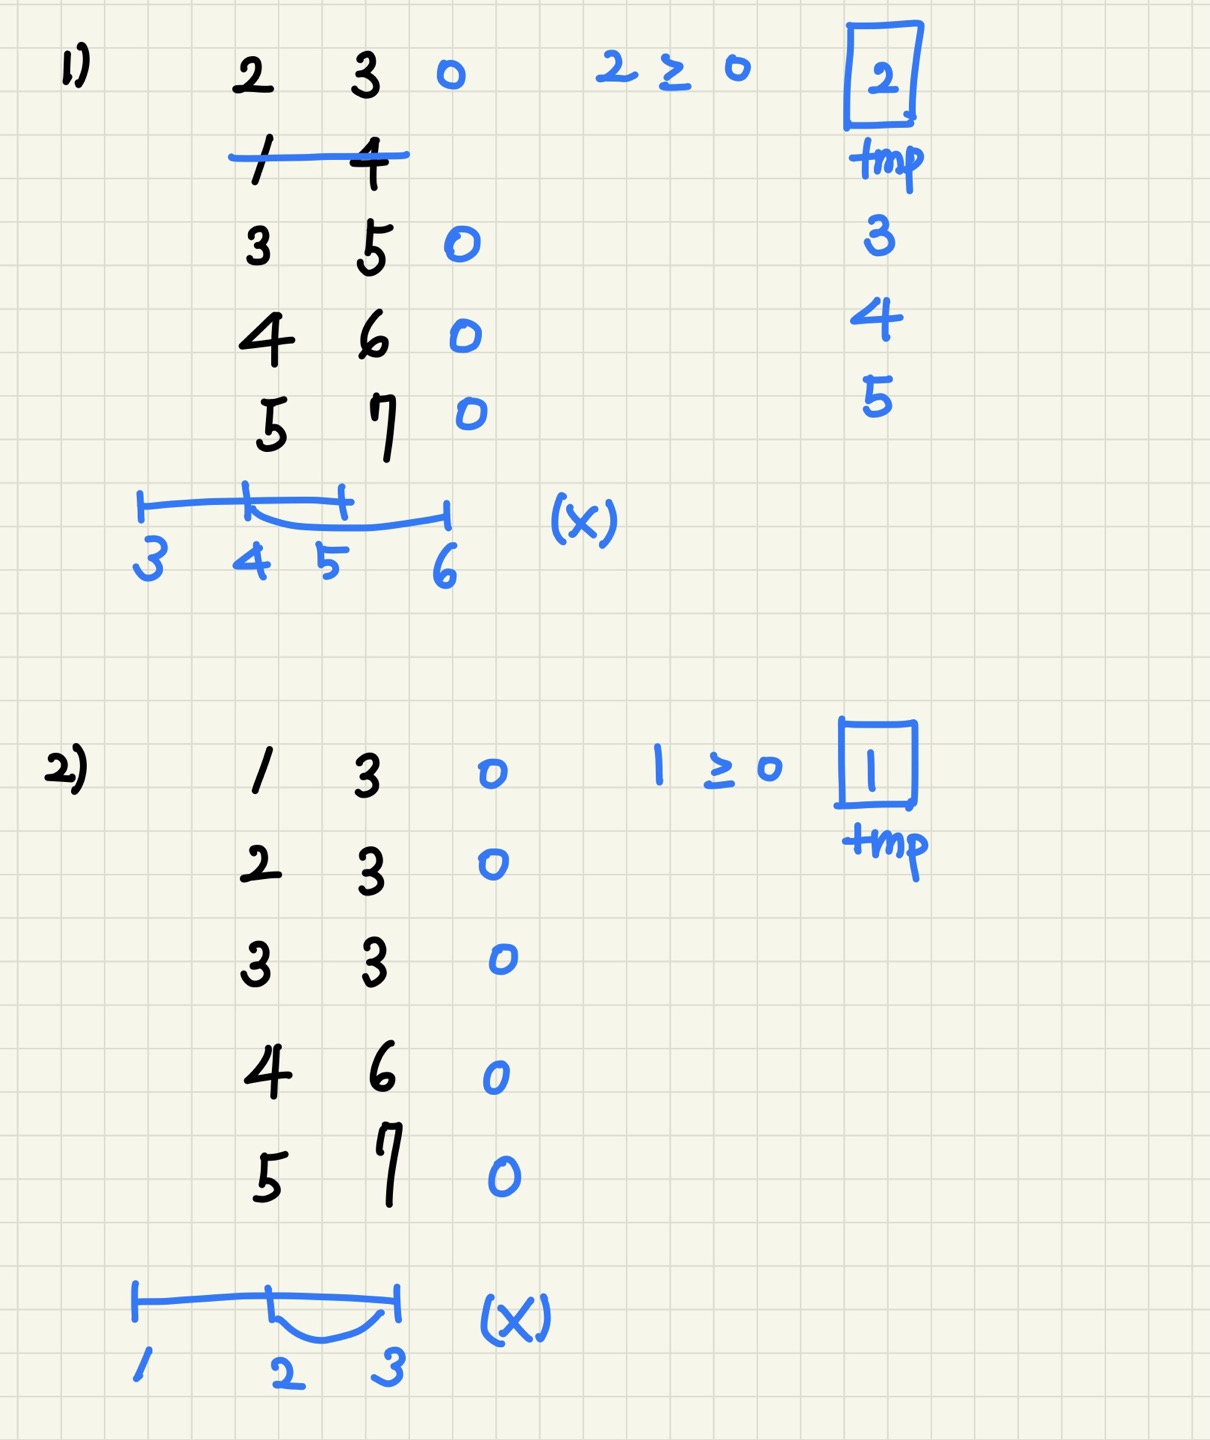 1) 2 3 0 2 ≥ 0 2
1 4 tmp
3 5 0 3
4 6 0 4
5 7 0 5
(x)
3 4 5 6
2) 1 3 0 1 ≥ 0 1
2 3 0 tmp
3 3 0
4 6 0
5 7 0
(x)
1 2 3